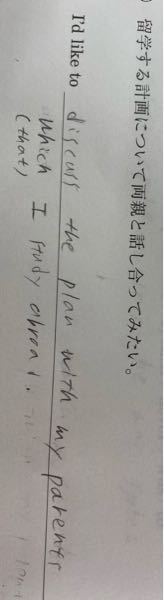 ) 留学する計画について両親と話し合ってみたい。
I'd like to discuss the plan with my parents
which I study abroad.
(that)